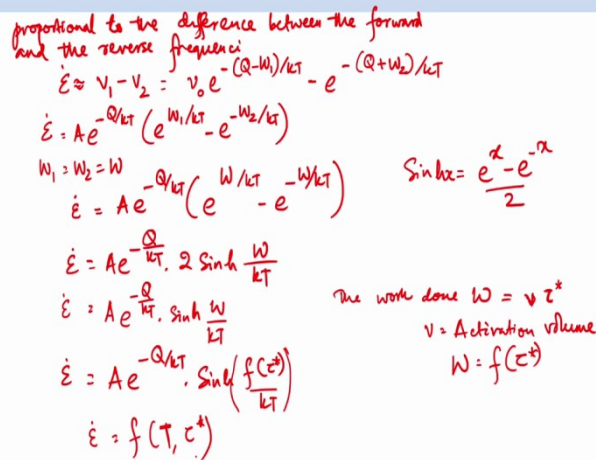 proportional to the difference between the forward
and the reverse frequenci
ε̇ ≈ ν₁-ν₂ = ν₀e^-(Q-W₁)/kT - e^-(Q+W₂)/kT
ε̇ = Ae^-Q/kT (e^W₁/kT - e^-W₂/kT)
W₁ = W₂ = W
Sinhx = (e^x - e^-x)/2
ε̇ = Ae^-Q/kT (e^W/kT - e^-W/kT)
ε̇ = Ae^-Q/kT . 2 Sinh W/kT
ε̇ = Ae^-Q/kT . Sinh W/kT
The work done W = v τ*
v = Activation volume
W = f(τ*)
ε̇ = Ae^-Q/kT . Sinh(f(τ*)/kT)
ε̇ = f(T, τ*)